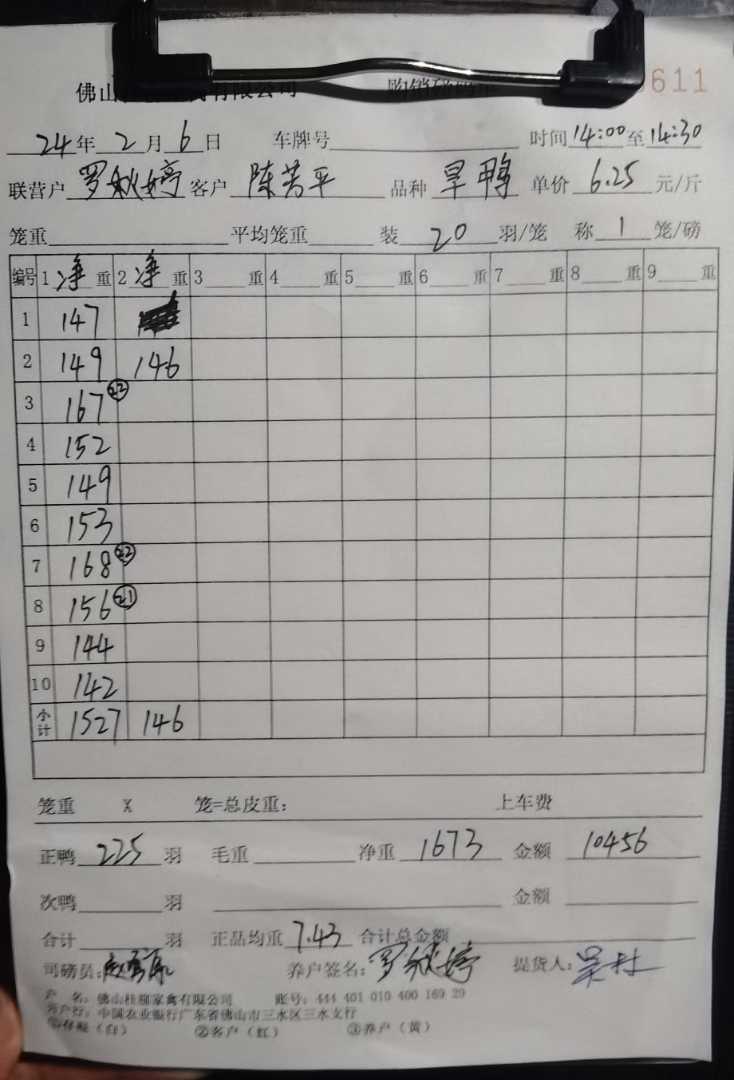 佛山 有限公司 611
24年2月6日 车牌号 时间14:00至14:30
联营户 罗秋婷 客户 陈芳平 品种 旱鸭 单价 6.25 元/斤
笼重 平均笼重 装 20 羽/笼 称 1 笼/磅
编号 1 净 重 2 净 重 3 重 4 重 5 重 6 重 7 重 8 重 9 重
1 147
2 149 146
3 167 22
4 152
5 149
6 153
7 168 22
8 156 21
9 144
10 142
小计 1527 146
笼重 X 笼=总皮重: 上车费
正鸭 225 羽 毛重 净重 1673 金额 10456
次鸭 羽 金额
合计 羽 正品均重 7.43 合计总金额
司磅员: 养户签名: 罗秋婷 提货人:
户 名: 佛山桂柳家禽有限公司 账号: 444 401 010 400 169 29
开户行: 中国农业银行广东省佛山市三水区三水支行
①存根(白) ②客户(红) ③养户(黄)